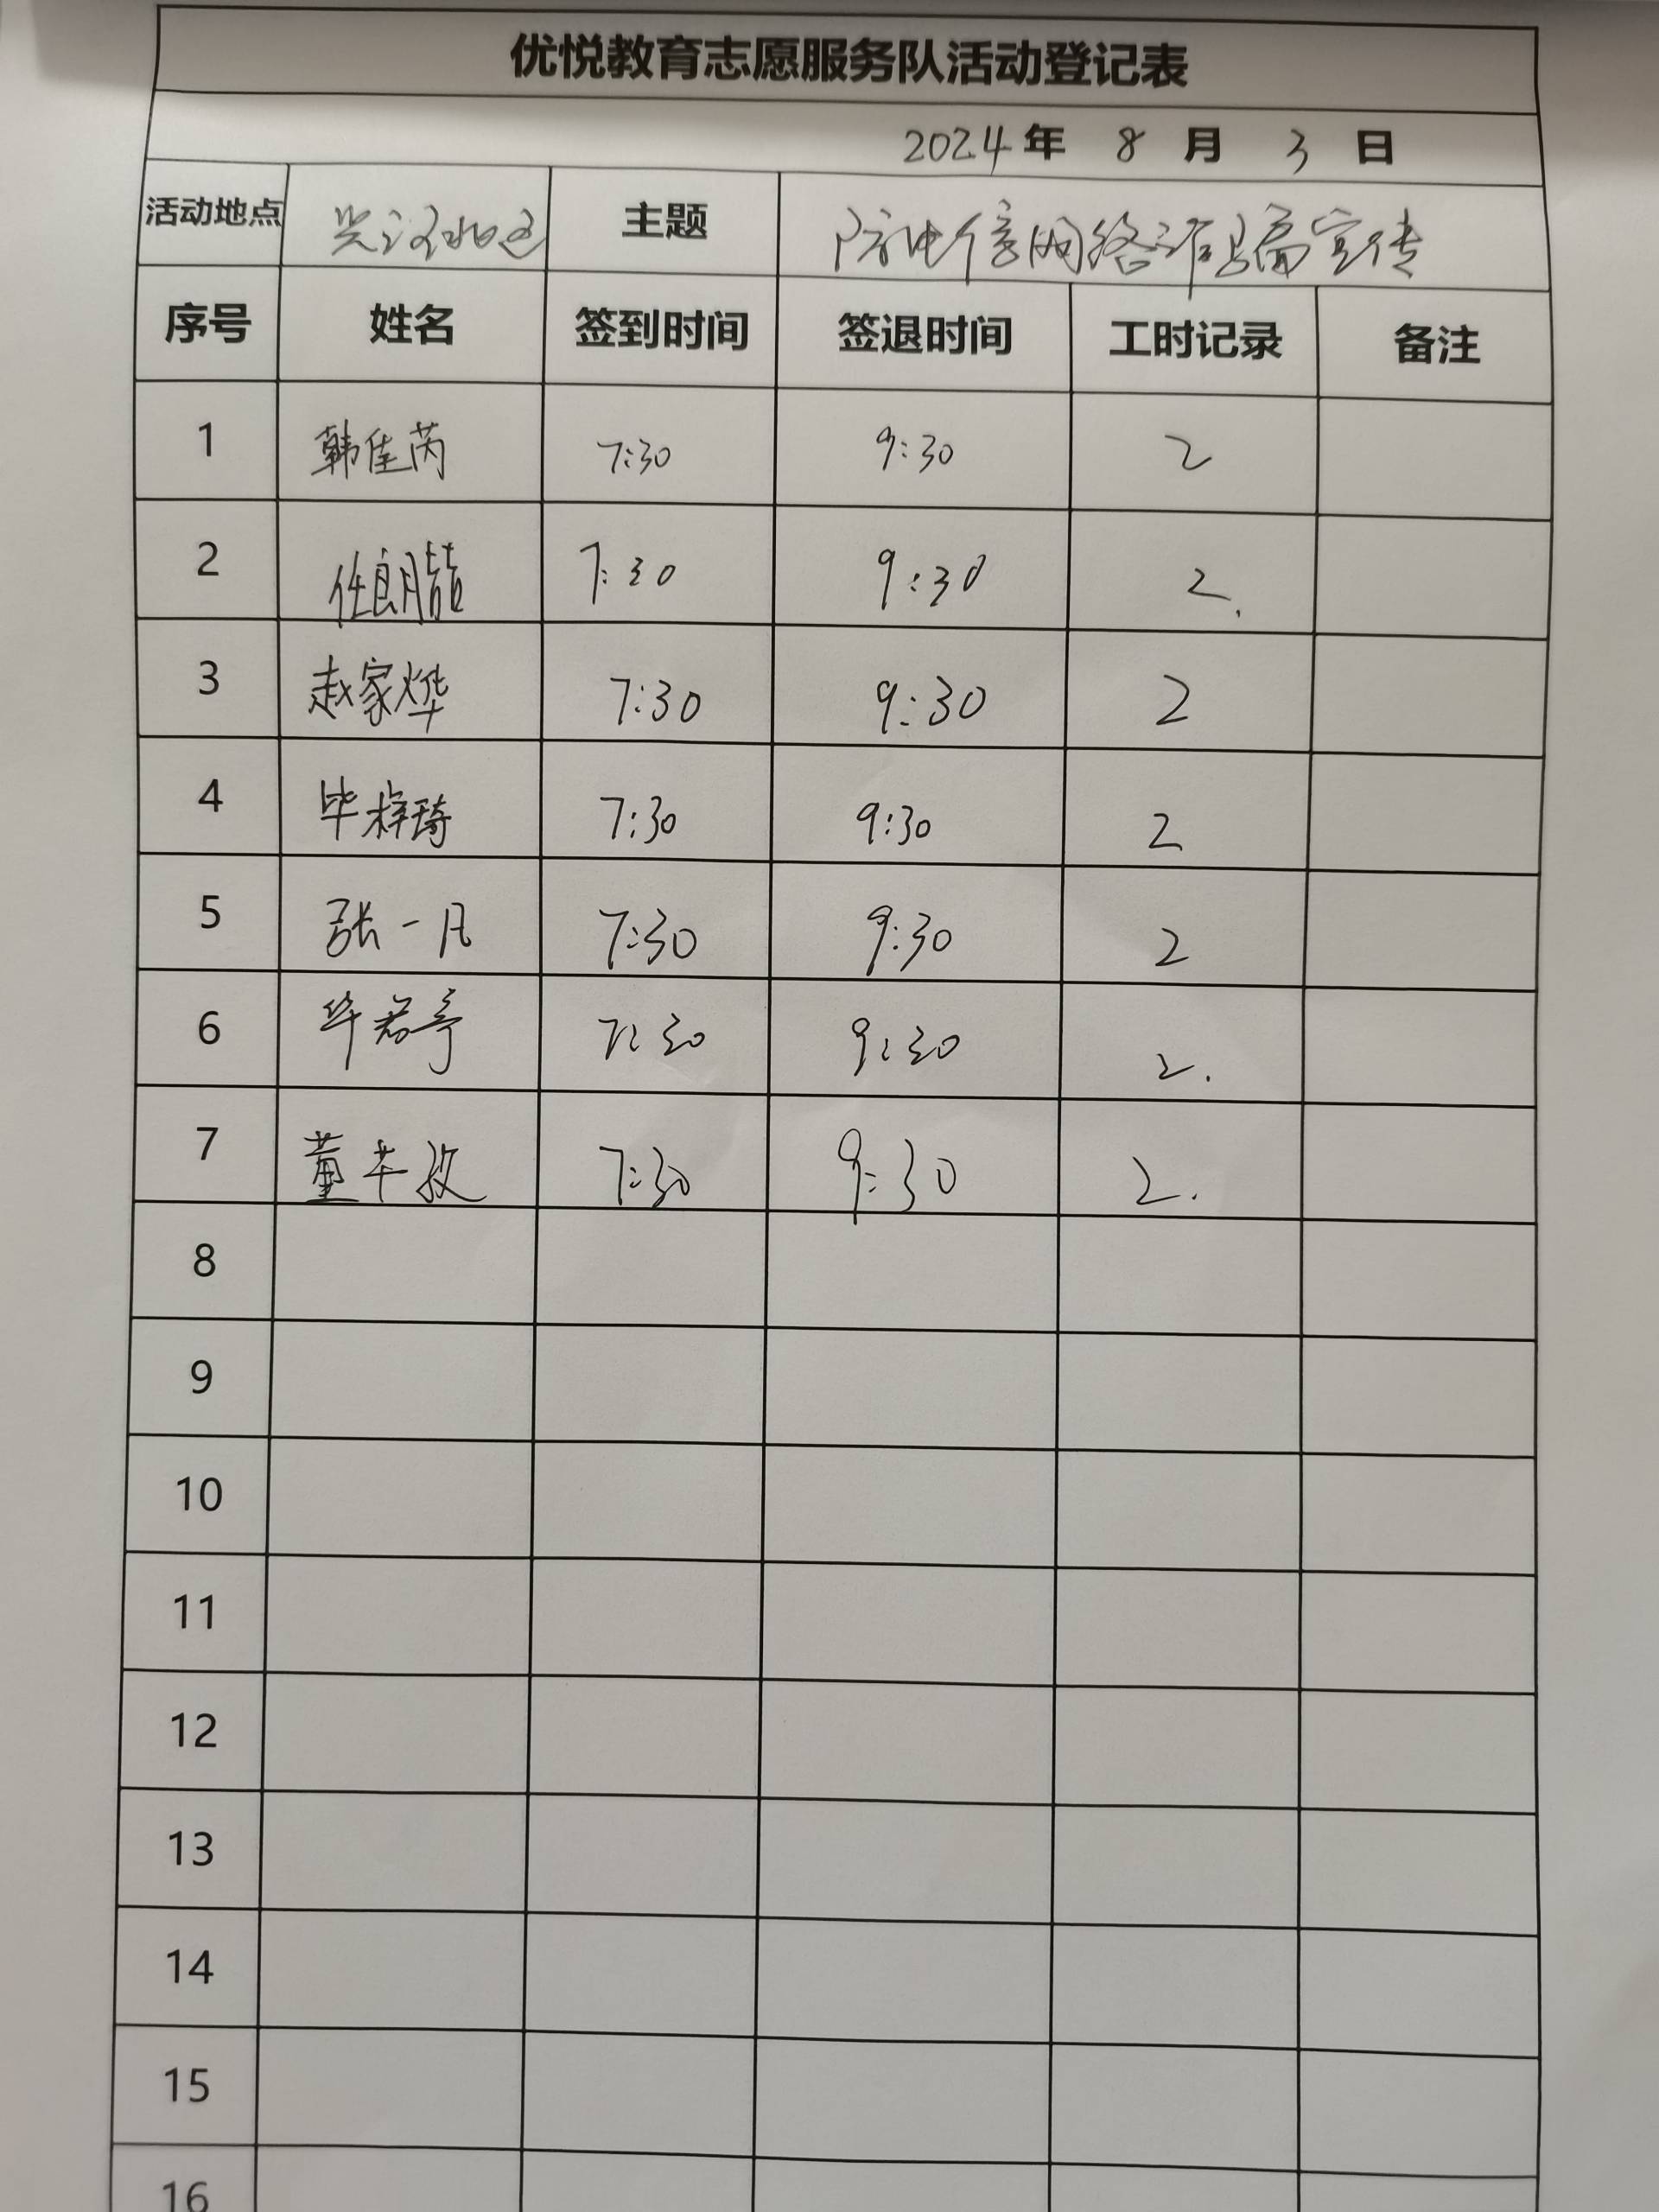 优悦教育志愿服务队活动登记表
2024年 8 月 3 日
活动地点 兴汉北区 主题 防电信网络诈骗宣传
序号 姓名 签到时间 签退时间 工时记录 备注
1 韩佳芮 7:30 9:30 2
2 任朗喆 7:30 9:30 2.
3 赵家烨 7:30 9:30 2
4 毕梓琦 7:30 9:30 2
5 张一凡 7:30 9:30 2
6 毕若亭 7:30 9:30 2.
7 董 7:30 9:30 2.
8
9
10
11
12
13
14
15
16